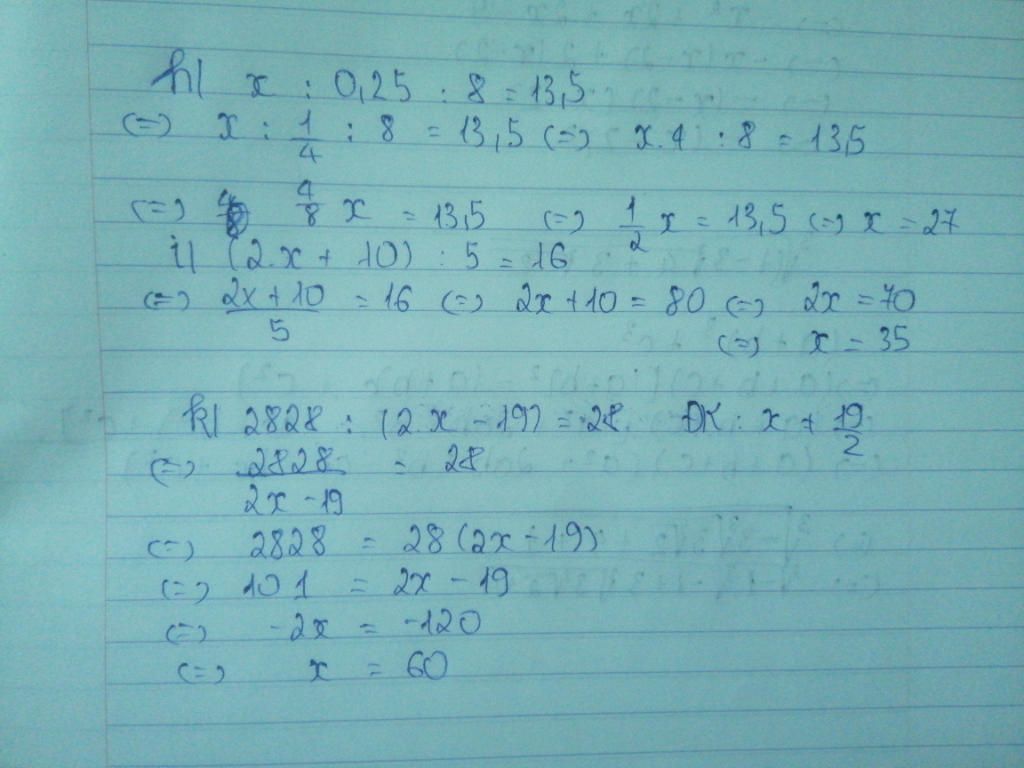 h) x : 0,25 : 8 = 13,5
(=) x : 1/4 : 8 = 13,5 (=) x.4 : 8 = 13,5
(=) 4/8 x = 13,5 (=) 1/2 x = 13,5 (=) x = 27
i) (2.x + 10) : 5 = 16
(=) 2x+10/5 = 16 (=) 2x+10 = 80 (=) 2x = 70
(=) x = 35
k) 2828 : (2 x - 19) = 28 ĐK : x ≠ 19/2
(=) 2828/2x - 19 = 28
(=) 2828 = 28(2x - 19)
(=) 101 = 2x - 19
(=) -2x = -120
(=) x = 60